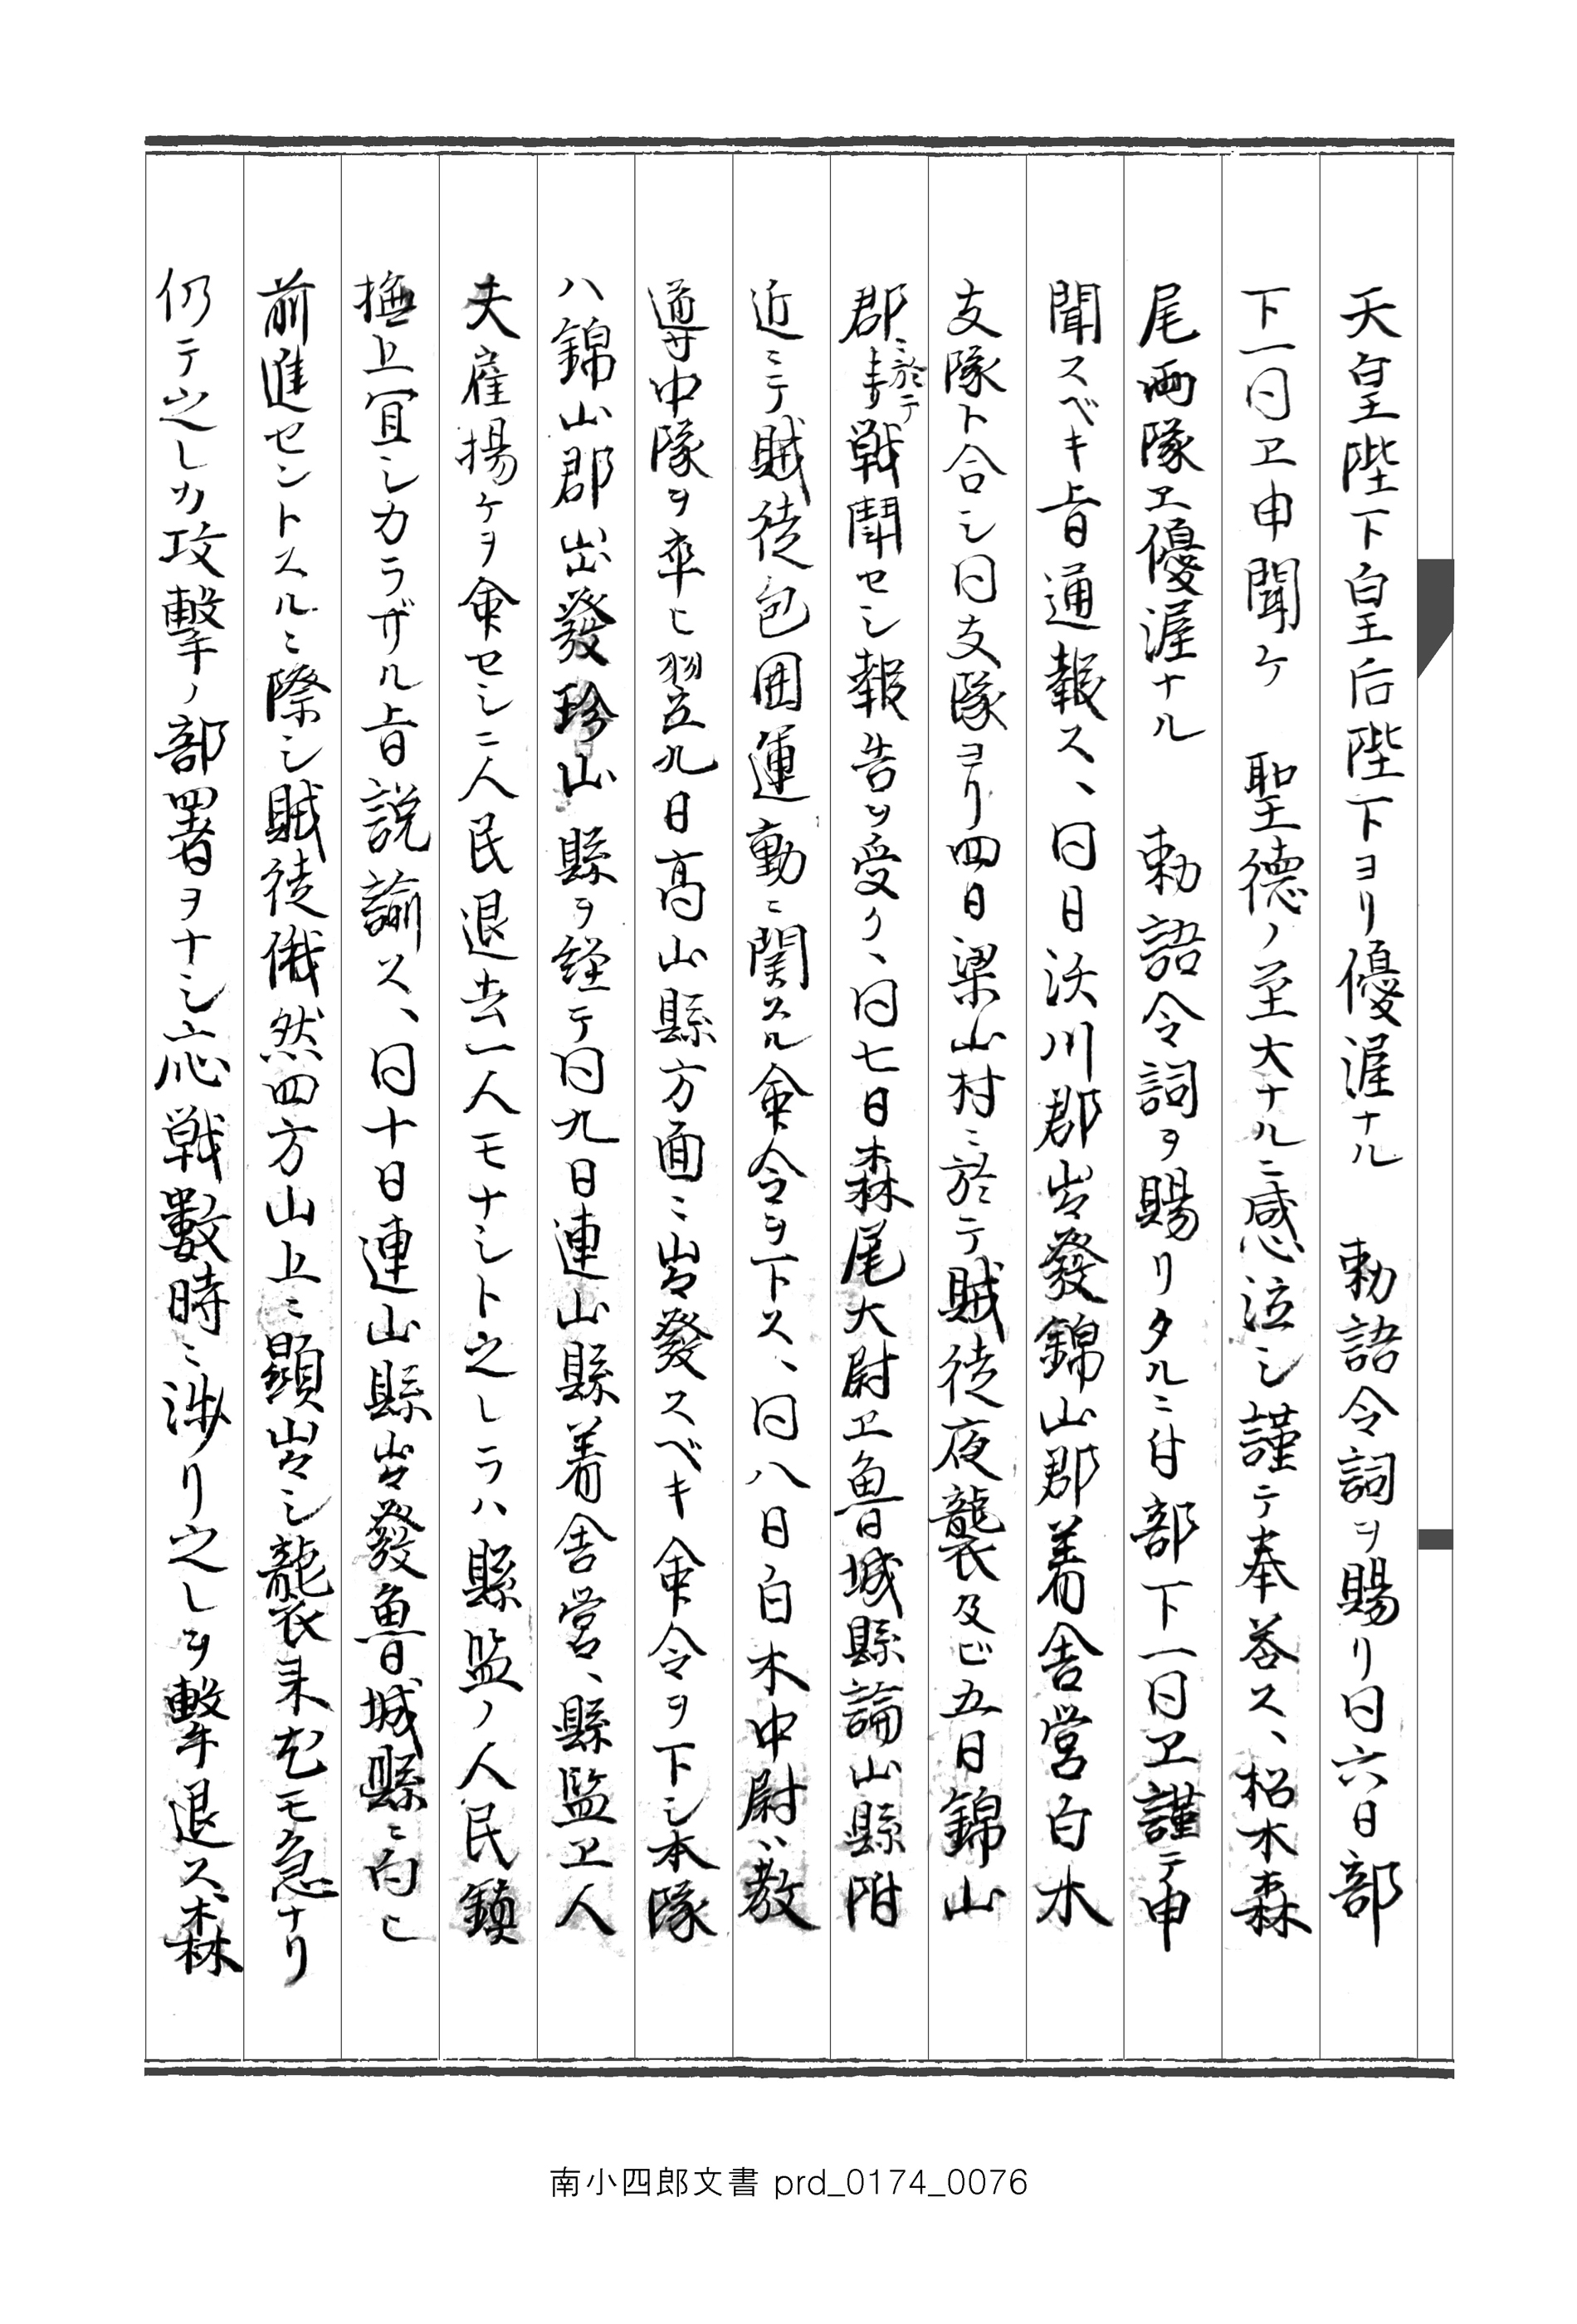 天皇陛下皇后陛下ヨリ優渥ナル　勅語令詞ヲ賜リ同六日部
下一同ヱ申聞ケ　聖徳ノ至大ナルニ感泣シ謹テ奉答ス、松木森
尾両隊ヱ優渥ナル　勅語令詞ヲ賜リタルニ付部下一同ヱ謹テ申
聞スベキ旨通報ス、同日沃川郡出發錦山郡着舎営白木
支隊ト合シ同支隊ヨリ四日梁山村ニ於テ賊徒夜襲及ビ五日錦山
郡ニ於テ戦闘セシ報告ヲ受ク、同七日森尾大尉ヱ魯城縣論山縣附
近ニテ賊徒包囲運動ニ関スル命令ヲ下ス、同八日白木中尉ハ教
導中隊ヲ率ヒ翌九日高山縣方面ニ出發スベキ命令ヲ下シ本隊
ハ錦山郡出發珍山縣ヲ経テ同九日連山縣着舎営、縣監ヱ人
夫雇揚ケヲ命セシニ人民退去一人モナシト之レラハ縣監ノ人民鎮
撫上宜シカラザル旨説諭ス、同十日連山縣出發魯城縣ニ向ヒ
前進セントスルニ際シ賊徒俄然四方山上ニ顕出シ襲来尤モ急ナリ
仍テ之レカ攻撃ノ部署ヲナシ応戦數時ニ渉リ之レヲ撃退ス、森
南小四郎文書 prd_0174_0076